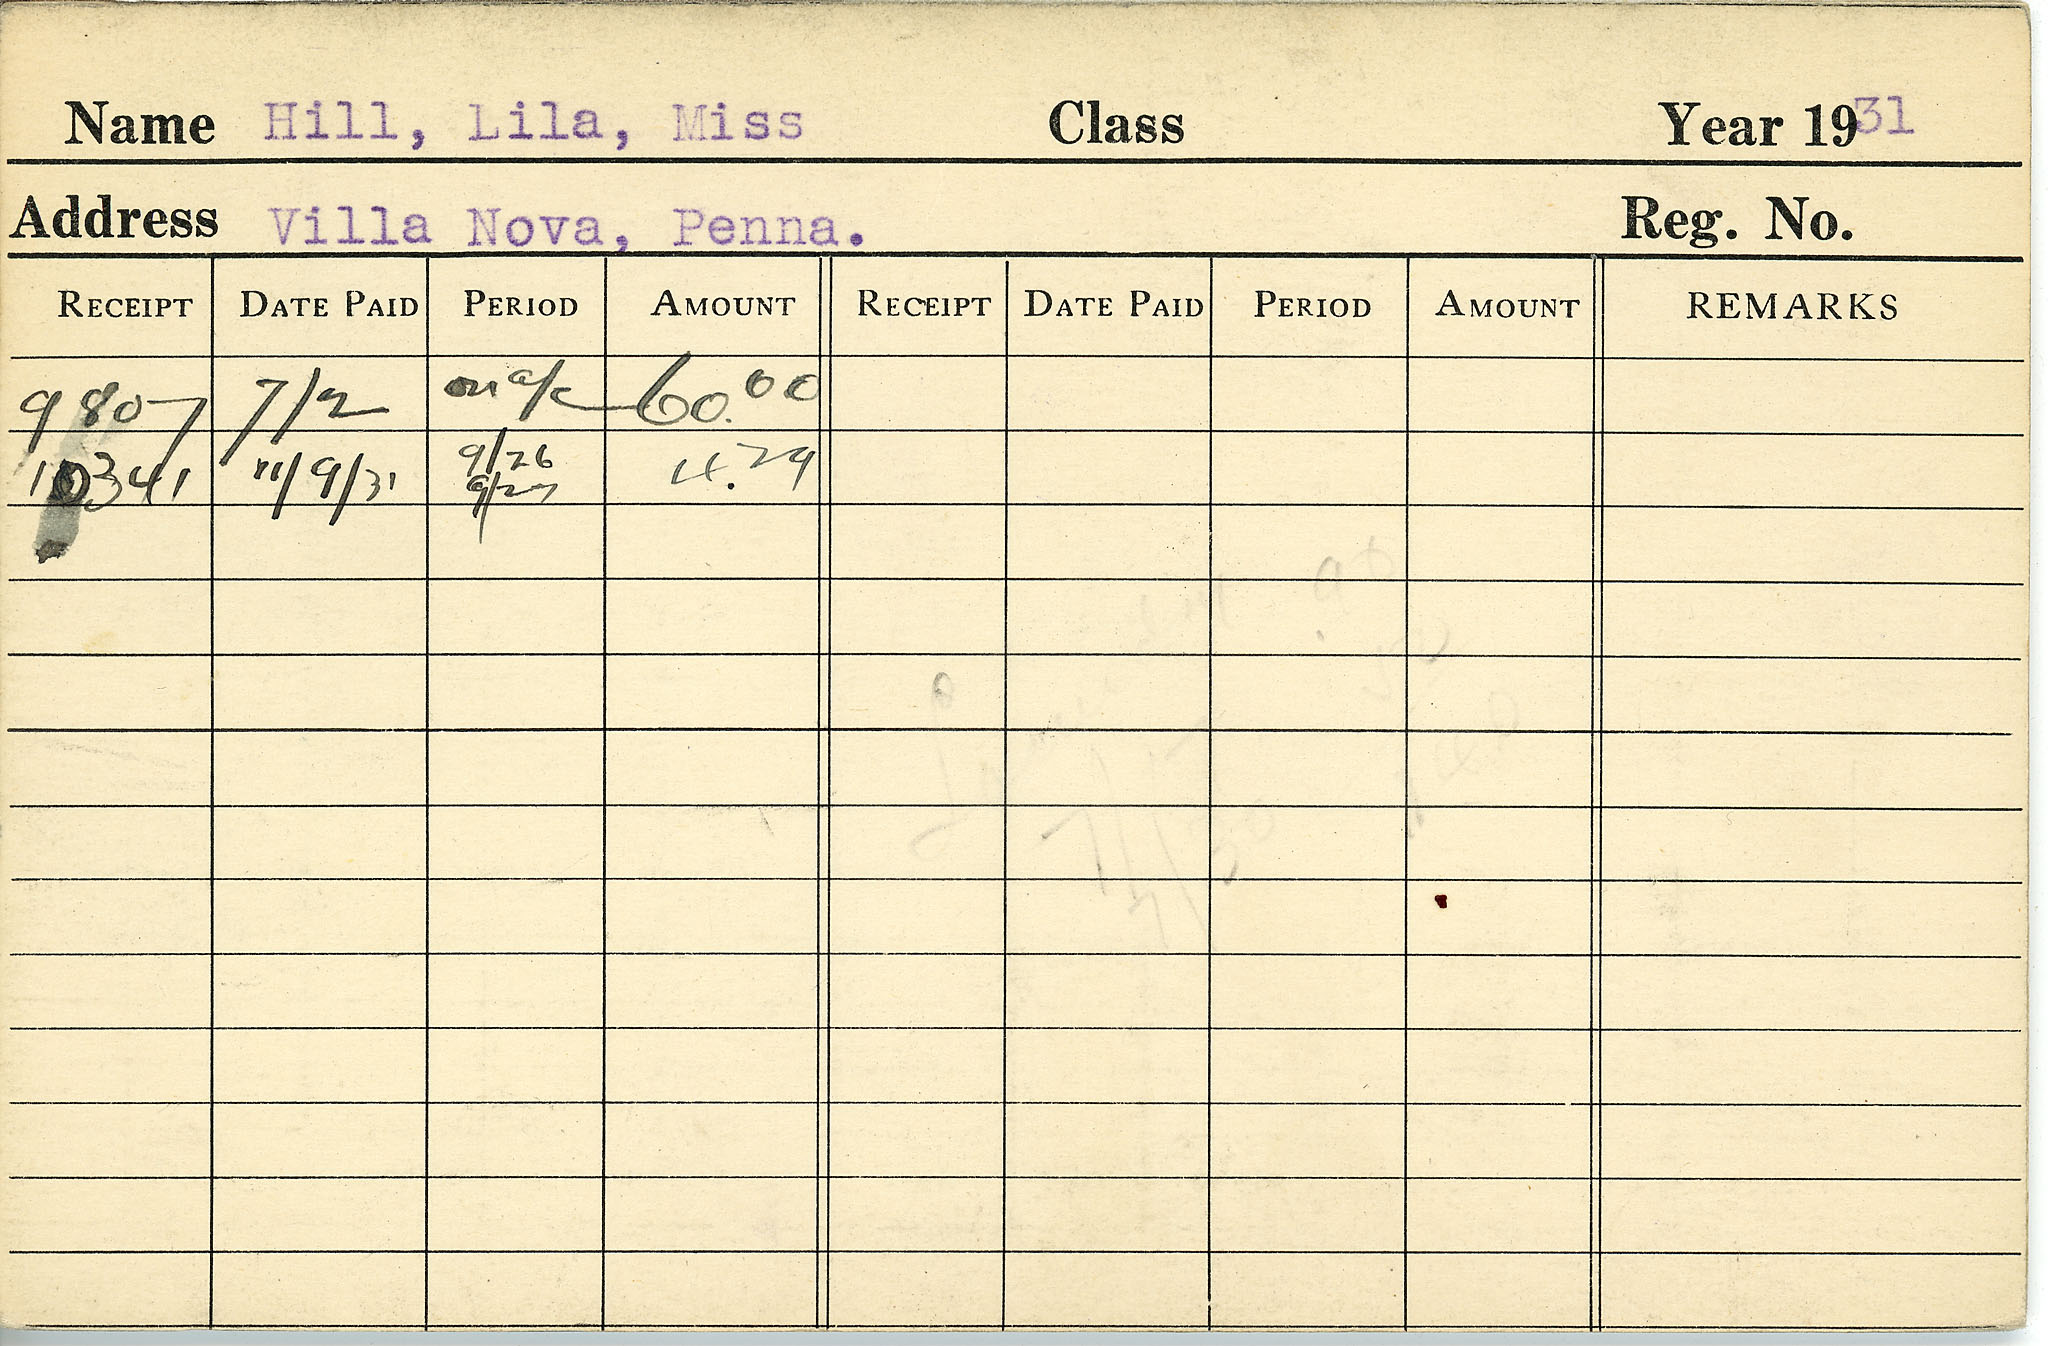 Name Hill, Lila, Miss Class Year 1931
Address Villa Nova, Penna. Reg. No.
RECEIPT DATE PAID PERIOD AMOUNT RECEIPT DATE PAID PERIOD AMOUNT REMARKS
9807 7/2 on a/c 60.00
10341 11/9/31 9/26 4.29
9/27